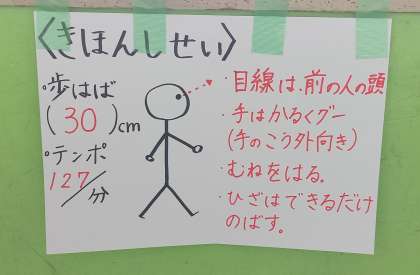 〈きほんしせい〉
・歩はば
(30)cm
・テンポ
127/分
・目線は、前の人の頭
・手はかるくグー
(手のこう外向き)
・むねをはる。
・ひざはできるだけ
のばす。